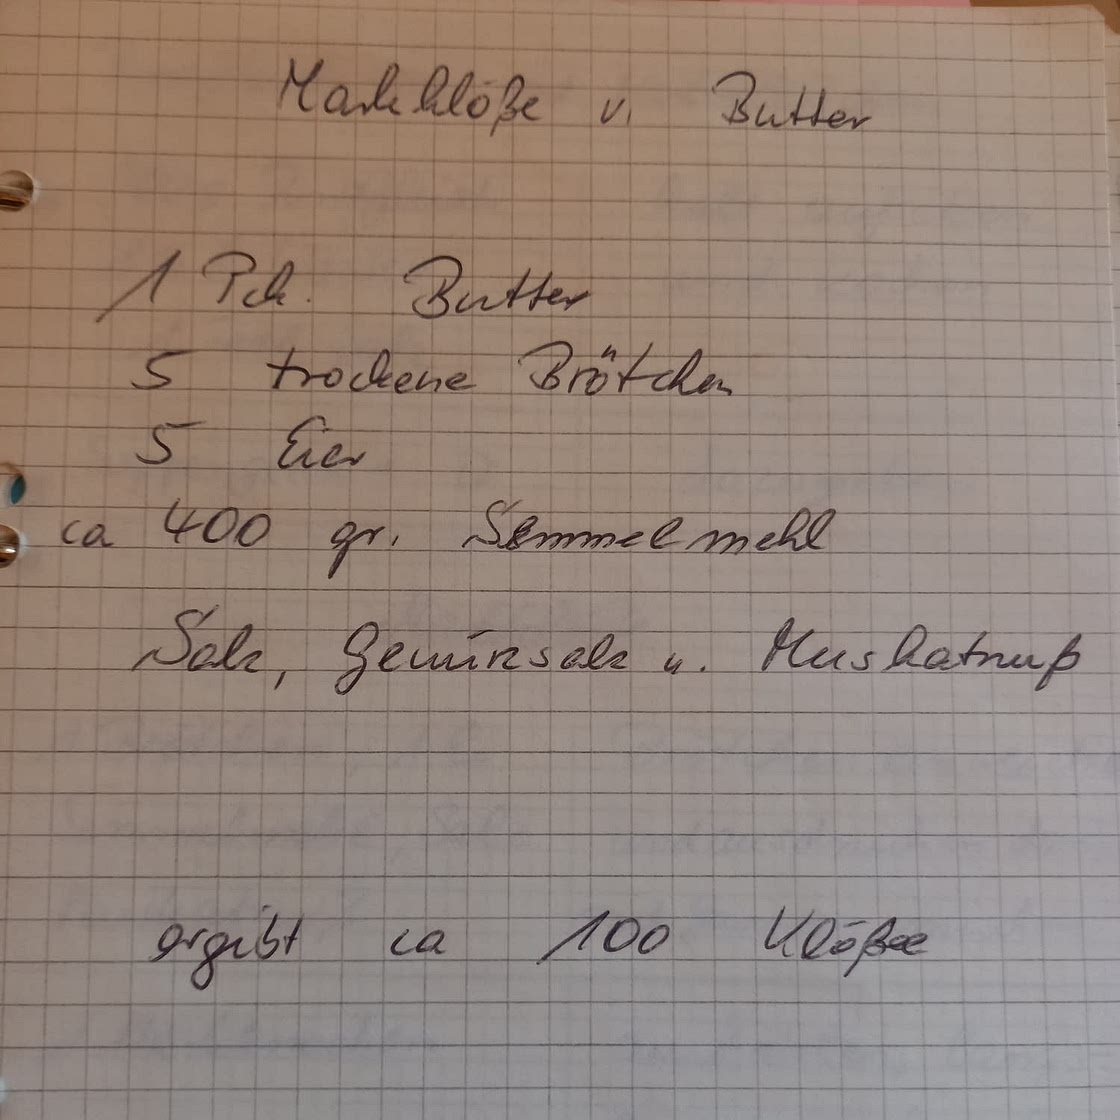 Markklöße v. Butter
1 Pck. Butter
5 trockene Brötchen
5 Eier
ca 400 gr. Semmelmehl
Salz, Gewürzsalz u. Muskatnuß
ergibt ca 100 Klöße